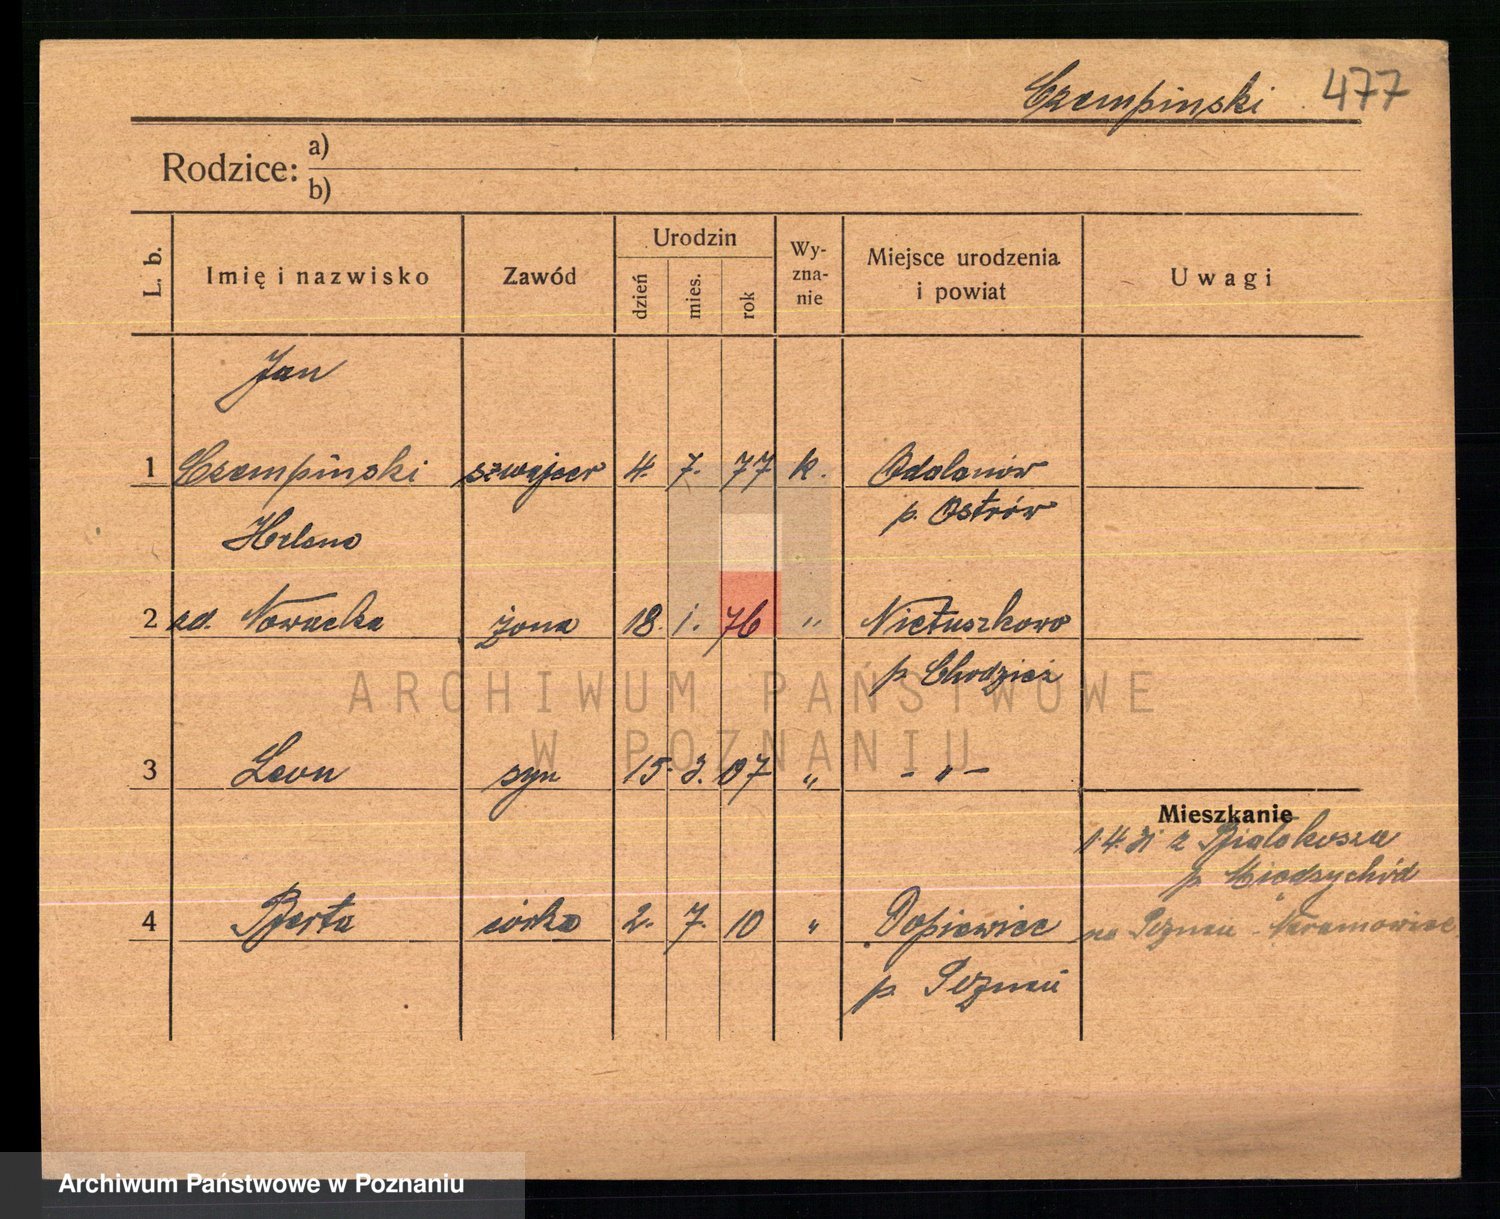 Czempinski 477
Rodzice: a)
b)
L. b.
Imię i nazwisko
Zawód
Urodzin
dzień
mies.
rok
Wy-
zna-
nie
Miejsce urodzenia
i powiat
Uwagi
Jan
1 Czempinski szwajcer 4. 7. 77 k. Odolanów
p. Ostrów
Helena
2 zd. Nowacka żona 18. 1. 76 " Nietuszkowo
p. Chodzież
3 Leon syn 15. 3. 07 " - " -
Mieszkanie
1.4.31 z Białokosza
p. Międzychód
4 Berta córka 2. 7. 10 " Dopiewiec
na Poznań - Naramowice
p. Poznań
ARCHIWUM PAŃSTWOWE
W POZNANIU
Archiwum Państwowe w Poznaniu